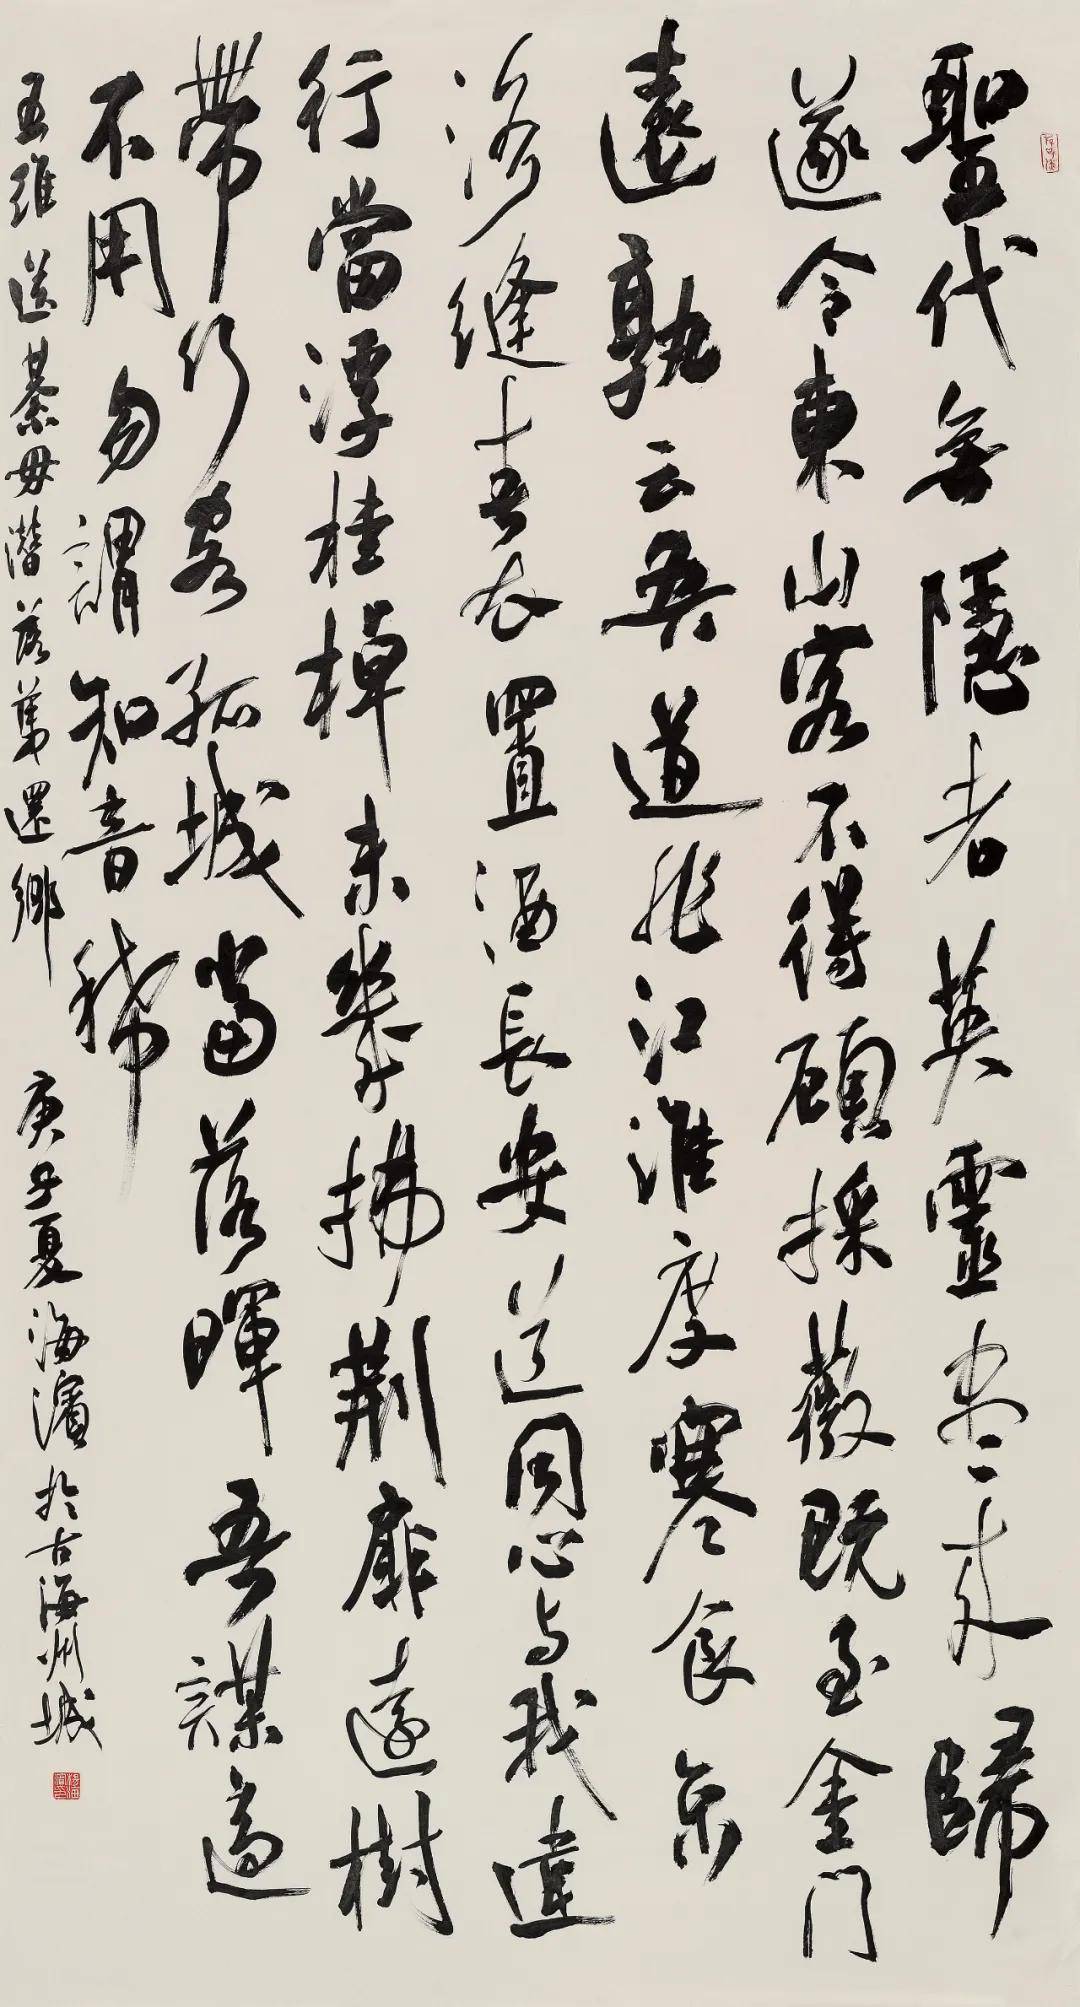 聖代無隱者英靈盡来歸
遂令東山客不得顧採薇既至金門
遠孰云吾道非江淮度寒食京
洛縫春衣置酒長安道同心与我違
行當浮桂棹未幾拂荊扉遠樹
帶行客孤城當落暉吾謀適
不用勿謂知音稀
王維送綦毋潛落第還鄉 庚子夏海濱於古海州城